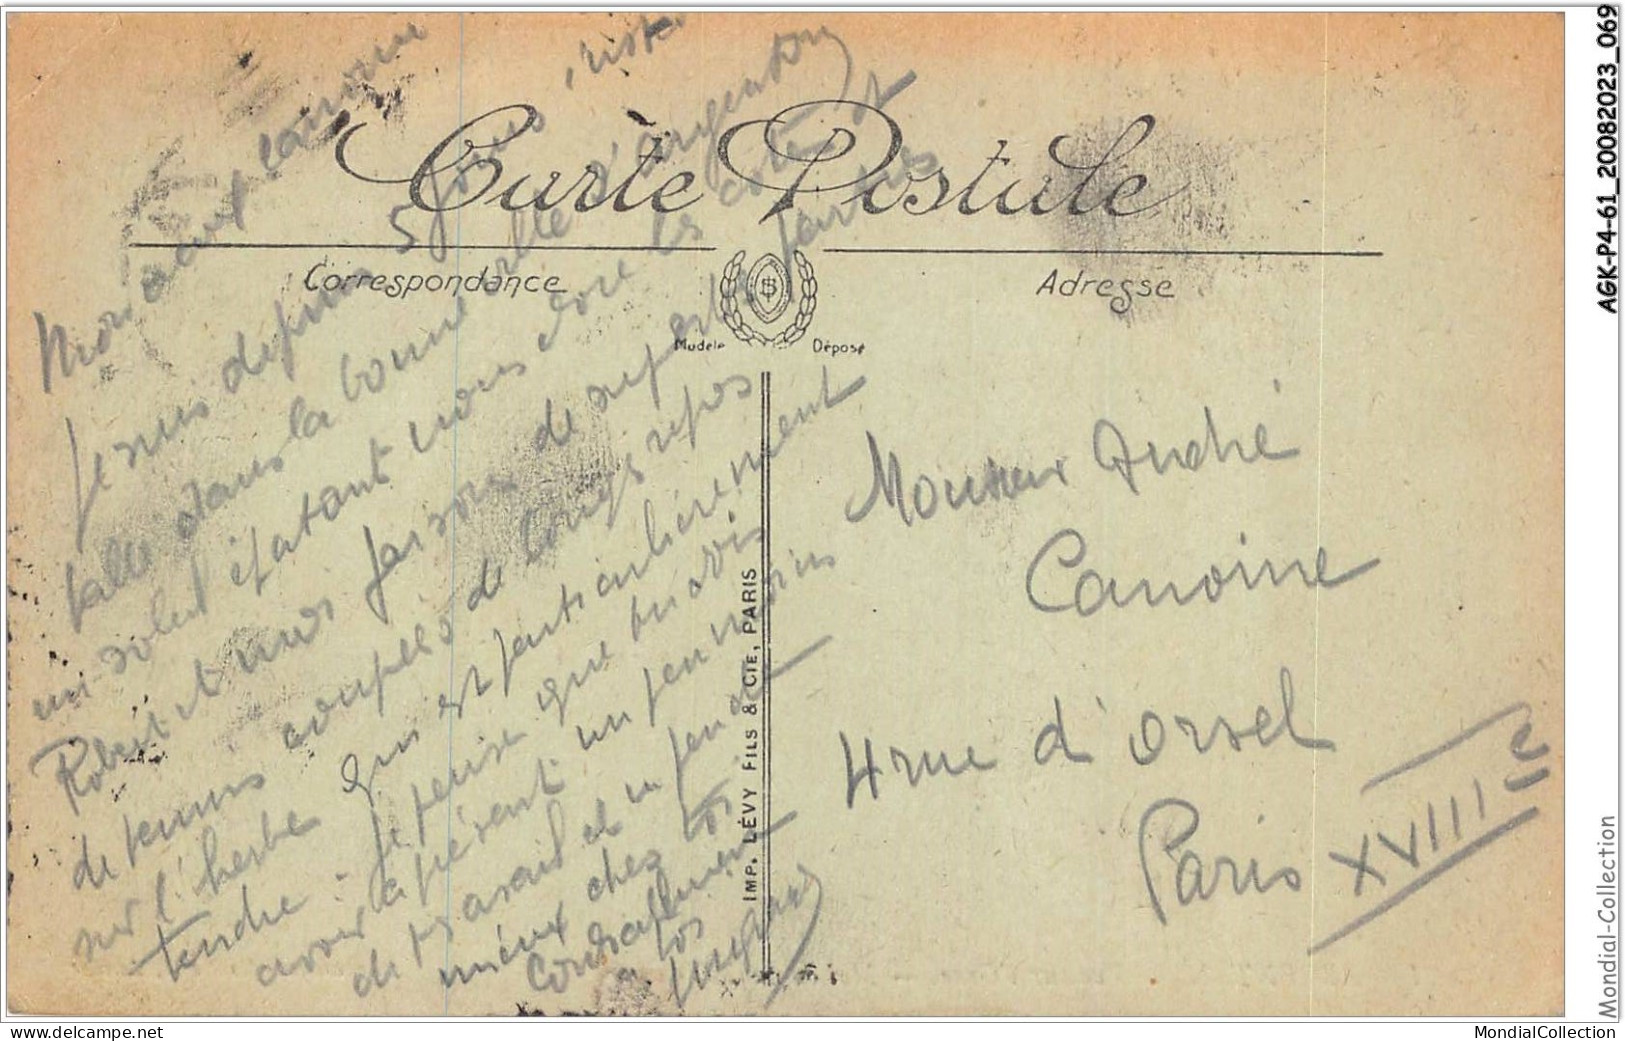 Carte Postale
Correspondance
Adresse
Modèle Déposé
Mon vieux Canoine
Je suis depuis 5 jours
dans la bonne ville d'Argentan
un soleil étatant nous dore les côtes et
Robert et moi faisons de superbes parties
de tennis coupées de longs repos
sur l'herbe qui est particulièrement
tendre. Je pense que tu dois
avoir à présent un peu moins
de travail et un peu de
mieux chez toi.
Cordialement
à toi
IMP. LÉVY FILS & CIE, PARIS
Monsieur André
Canoine
4 rue d'Orsel
Paris XVIIIe
AGK-P4-61_20082023_069
Mondial-Collection
delcampe.net
MondialCollection